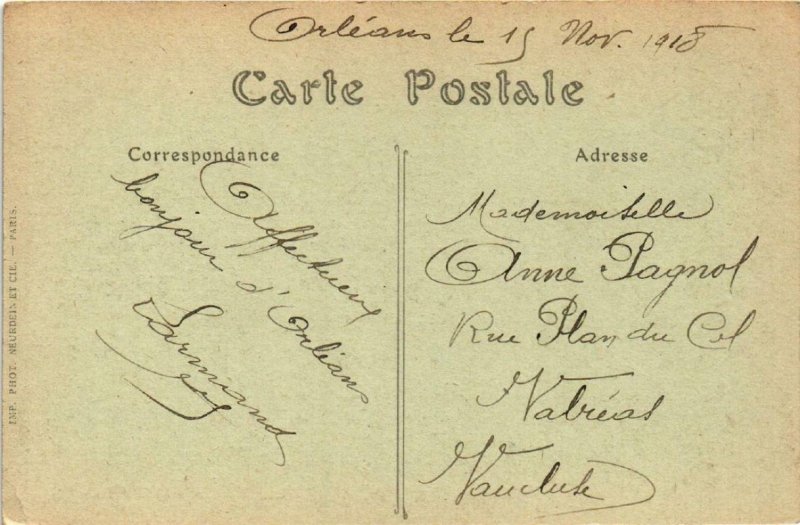 Orléans le 15 Nov. 1918
Carte Postale
Correspondance
Adresse
Affectueux
bonjour d'Orléans
Mademoiselle
Anne Pagnol
Rue Plan du Col
Valréas
Vaucluse
IMP. PHOT. NEURDEIN ET CIE. — PARIS.